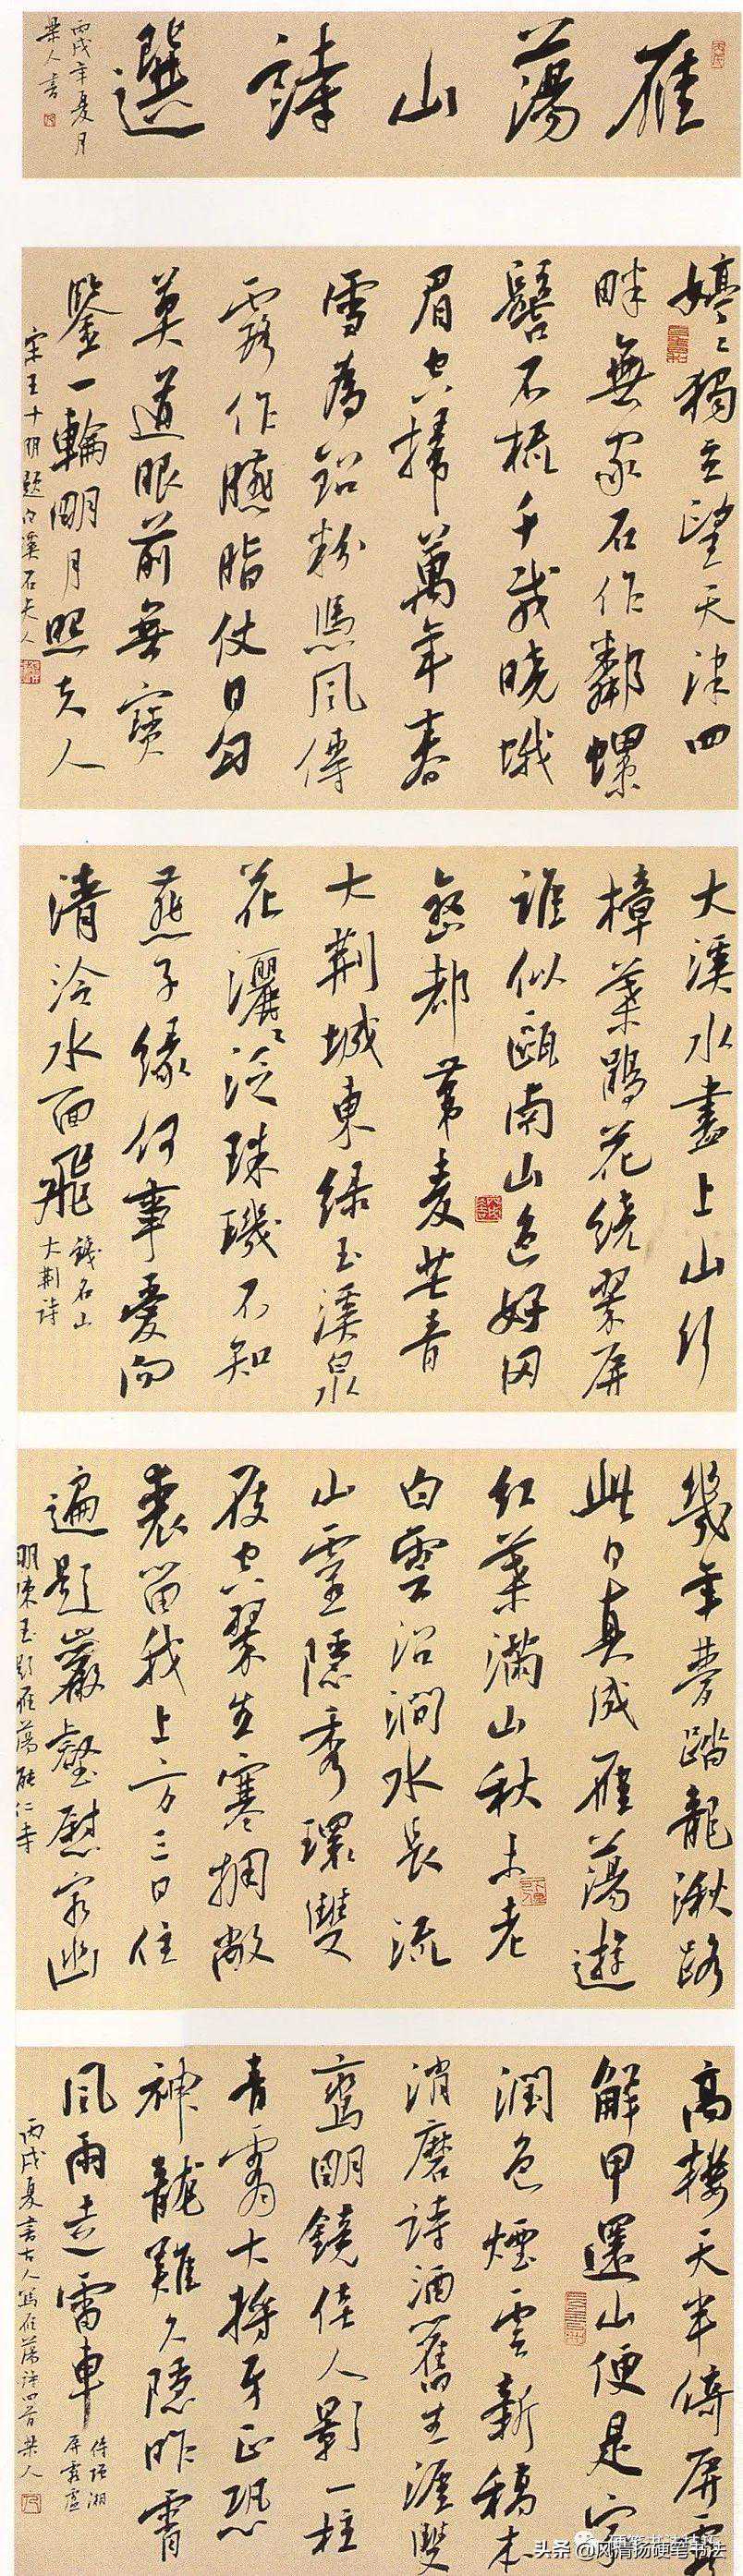 雁蕩山詩選
丙戌年夏月
樂人書
婷婷獨立望天津四
畔無家石作鄰螺
髻不梳千載曉蛾
眉空掃萬年春
雪為鉛粉憑風傳
霧作臙脂仗日勻
莫道眼前無寶
鑒一輪明月照夫人
宋王十朋題白溪石夫人
大溪水盡上山行
樟葉鵑花繞翠屏
誰似甌南山色好岡
巒都帶麥芒青
大荊城東綠玉溪泉
花灑灑泛珠璣不知
燕子緣何事愛向
清泠水面飛
錢石山
大荊詩
幾年夢踏龍湫路
此日真成雁蕩遊
紅葉滿山秋未老
白雲沿澗水長流
山靈隱秀環雙
屐空翠生寒擁敝
裘留我上方三日住
遍題巖壑慰窮幽
明陳玉題雁蕩能仁寺
高樓天半倚屏霞
解甲還山便是家
潤色煙雲新稿本
消磨詩酒舊生涯雙
鸞明鏡佳人影一柱
青霄大將牙正恐
神龍難久隱昨宵
風雨走雷車
屏霞廬
丙戌夏書古人寫雁蕩詩四首樂人
头条 @风清扬硬笔书法